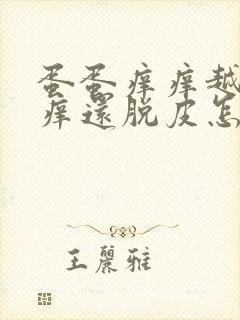 蛋蛋痒痒越
痒還脱皮怎
王麗雅